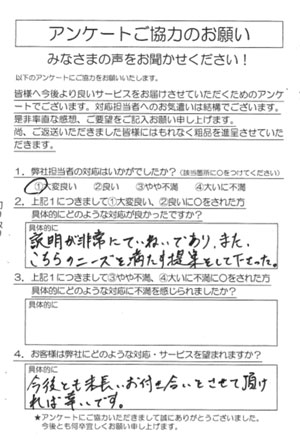 アンケートご協力のお願い
みなさまの声をお聞かせください!
以下のアンケートにご協力をお願いいたします。
皆様へ今後より良いサービスをお届けさせていただくためのアンケー
トでございます。対応担当者へのお気遣いは結構でございます。
是非率直な感想、ご要望をご記入お願い申し上げます。
尚、ご返送いただきました皆様にはもれなく粗品を進呈させていた
だきます。
1.弊社担当者の対応はいかがでしたか?(該当箇所に○をつけてください)
①大変良い ②良い ③やや不満 ④大いに不満
2.上記1につきまして①大変良い、②良いに○をされた方
具体的にどのような対応が良かったですか?
具体的に
説明が非常にていねいであり、また、
こちらのニーズを満たす提案をして下さった。
3.上記1につきまして③やや不満、④大いに不満に○をされた方
具体的にどのような対応に不満を感じられましたか?
具体的に
4.お客様は弊社にどのような対応・サービスを望まれますか?
具体的に
今後とも末長いお付き合いをさせて頂け
れば幸いです。
★アンケートにご協力いただきまして誠にありがとうございました。
今後とも何卒宜しくお願い申し上げます。